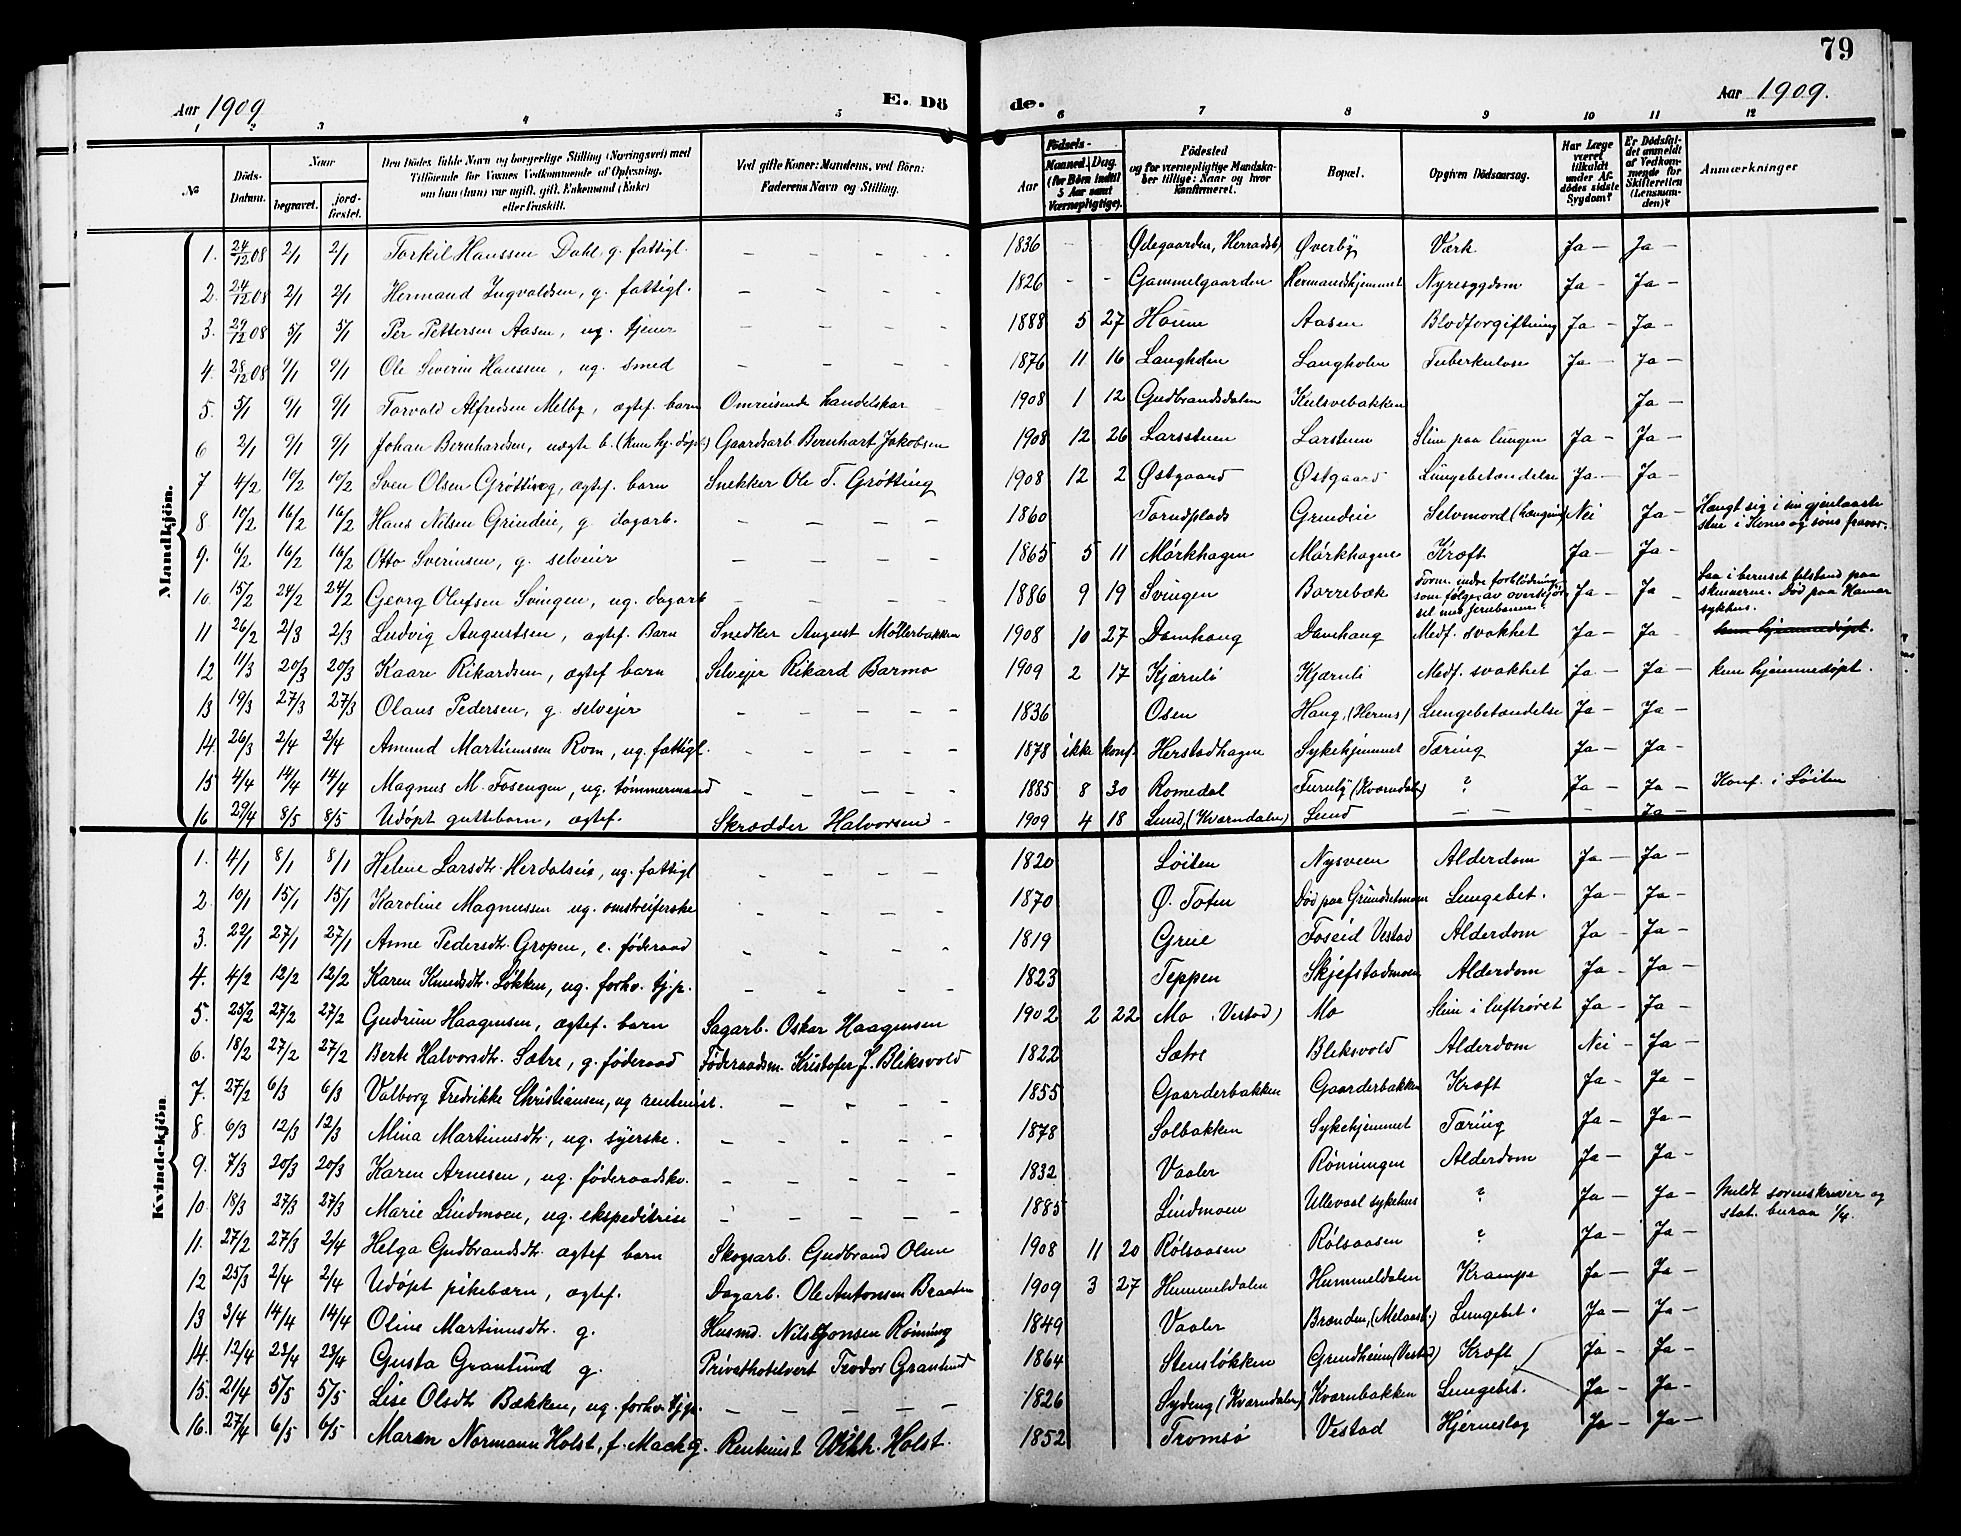 79
Aar 1909
E. Dö
de.
Aar 1909.
1 2 3 4 5 6 7 8 9 10 11 12
№
Döds-Datum.
Naar
begravet.
jord-fæstet.
Den Dödes fulde Navn og borgerlige Stilling (Næringsvei) med
Tilföiende for Voxnes Vedkommende af Oplysning,
om han (hun) var ugift, gift, Enkemand (Enke)
eller fraskilt.
Ved gifte Koner: Mandens, ved Börn:
Faderens Navn og Stilling.
Födsels-
Aar
Maaned. Dag.
(for Börn indtil
5 Aar samt
Værnepligtige).
Födested
og for værnepligtige Mandska-
ber tillige: Naar og hvor
konfirmeret.
Bopæl.
Opgiven Dödsaarsag.
Har Læge
været
tilkaldt
under Af-
dödes sidste
Sygdom?
Er Dödsfal-
det anmeldt
af Vedkom-
mende for
Skifteretten
(Lensman-
den)?
Anmærkninger
Mandkjön.
1. 24/12 08 2/1 2/1 Torkil Hanssen Dahl, g. fattigl. — — - - 1836 - - Ødegaarden, Herradsb) Øverby Værk Ja — Ja —
2. 24/12 08 2/1 2/1 Hermand Ingvaldsen, g. fattigl. — — — — 1826 - - Gammelgaarden Hermandshjemmet Nyresygdom Ja — Ja —
3. 29/12 08 5/1 5/1 Per Pettersen Aasen, ug. tjener — — — — 1888 5 27 Houm Aasen Blodforgiftning Ja — Ja —
4. 28/12 08 9/1 9/1 Ole Severin Hanssen, ug. smed — — — — 1876 11 16 Langholen Langholen Tuberkulose Ja — Ja —
5. 5/1 9/1 9/1 Torvald Alfredsen Melby, ægtef. barn Omreisende handelskar 1908 1 12 Gudbrandsdalen Kulsvebakken Ja —
6 2/1 9/1 9/1 Johan Bernhardsen, uægte b. (kun hj. døpt.) Gaardsarb. Bernhart Jakobsen 1908 12 26 Larsstuen Larstuen Slim paa lungen Ja — Ja —
7 4/2 10/2 10/2 Sven Olsen Grötting, ægtef. barn Snekker Ole T. Grøtting 1908 12 2 Østgaard Østgaard Lungebetændelse Ja — Ja —
8. 10/2 16/2 16/2 Hans Nilsen Grindeie, g dagarb. — — — — 1860 Grindeie Selvmord (hængning) Nei Ja — Hængt sig i sin gjenlaaste
stue i Kones og søns fravær.
9. 6/2 16/2 16/2 Otto Sverinsen, g. selveier — — — — 1865 5 11 Mørkhagen Mørkhagen Kræft Ja — Ja —
10. 15/2 24/2 24/2 Georg Olufsen Svingen, ug. dagarb — — — — 1886 9 19 Svingen Borrebæk Form. indre forblødning
som følge av overskjør-
sel med jernbanen. Ja — Ja — Laa i beruset tilstand paa
skinnerne. Død paa Hamar
sykhus.
11 26/2 2/3 2/3 Ludvig Augustsen, ægtef. Barn Snedker August Möllerbakken 1908 10 27 Damhaug Damhaug Medf. svakhet Ja — Ja - kun hjemmedøpt.
12 11/3 20/3 20/3 Kaare Rikardsen, ægtef barn Selvejer Rikard Barmo 1909 2 17 Kjærnli Kjærnli Medf. svakhet Ja — Ja — kun hjemmedøpt.
13 19/3 27/3 27/3 Olaus Pedersen, g. selvejer — — — — 1836 Osen Haug, (Hernes) Lungebetændelse Ja — Ja —
14. 26/3 2/4 2/4 Amund Martinussen Rom, ug. fattigl. — — — — 1878 ikke konf. Herstadhagen Sykehjemmet Tæring Ja — Ja —
15 4/4 14/4 14/4 Magnus M. Fosengen, ug. tømmermand — — — — 1885 8 30 Romedal Furuly (Kværndalen) ? Ja — Ja — Konf. i Løiten
16 29/4 8/5 8/5 Udøpt guttebarn, ægtef. Skrædder Halvorsen - 1909 4 18 Lund, (Kværndalen) Lund — — — Ja —
Kvindekjön.
1. 4/1 8/1 8/1 Helene Larsdtr. Herdalseie, ug. fattigl - - — — 1820 Løiten Nysveen Alderdom Ja — Ja —
2. 10/1 15/1 15/1 Karoline Magnussen ug. omstreiferske - - - - 1870 Ø. Toten Død paa Grundsetmoen Lungebet. Ja — Ja —
3. 22/1 27/1 27/1 Anne Pedersdtr. Gropen, e. føderaad - - - - 1819 Grue Foseid Vestad Alderdom Ja — Ja —
4. 4/2 12/2 12/2 Karen Knudsdtr. Løkken, ug. forhv. tj.p. - - - - 1823 Teppen Skjefstadmoen Alderdom Ja — Ja —
5. 25/2 27/2 27/2 Gudrun Haagensen, ægtef. barn Sagarb. Oskar Haagensen 1902 2 22 Mo (Vestad) Mo Slim i luftrøret Ja — Ja —
6. 18/2 27/2 27/2 Berte Halvorsdtr. Sætre, g. føderaad Føderaadsm. Kristofer J. Bliksvold 1822 Sætre Bleksvold Alderdom Nei - Ja —
7. 27/2 6/3 6/3 Valborg Fredrikke Christiansen, ug rentenist. — - — — 1855 Gaarderbakken Gaarderbakken Kræft Ja — Ja —
8. 6/3 12/3 12/3 Mina Martinusdtr., ug. syerske. — — — — 1878 Solbakken Sykehjemmet Tæring Ja — Ja —
9. 7/3 20/3 20/3 Karen Arnesen, ug. føderaadskv. - — — — 1832 Vaaler Rønningen Alderdom Ja — Ja —
10. 18/3 27/3 27/3 Marie Lindmoen, ug. ekspeditrise - — — — 1885 Lindmoen Ullevaal sykehus ? Ja — Ja — Meldt sorenskriver og
stat. buraa 1/4.
11. 27/2 27/3 2/4 Helga Gudbrandsdtr. ægtef barn Skogsarb. Gudbrand Olsen 1908 11 20 Rølsaasen Rølsaasen ? Ja — Ja —
12 25/3 2/4 2/4 Udøpt pikebarn, ægtef. Dagarb. Ole Antonsen Braaten 1909 3 27 Hummeldalen Hummeldalen Krampe Ja — Ja —
13 3/4 14/4 14/4 Oline Martinusdtr. g. Husmd. Nils Jonsen Rønning 1849 Vaaler Brænden, (Melaasb.) Lungebet. Ja — Ja —
14. 12/4 23/4 23/4 Gusta Granlund g. Privathotelvert Teodor Granlund 1864 Stensløkken Grundheim (Vestad) Kræft Ja — Ja —
15. 21/4 5/5 5/5 Lise Olsdtr Bækken, ug. forhv. tj.p. — — — — 1826 Syding (Kværndalen) Kværnbakken Lungebet. Ja — Ja —
16. 27/4 6/5 6/5 Maren Normann Holst, f. Mack g. Rentenist Wilh. Holst. 1852 Tromsø Vestad Hjerneslag Ja — Ja —